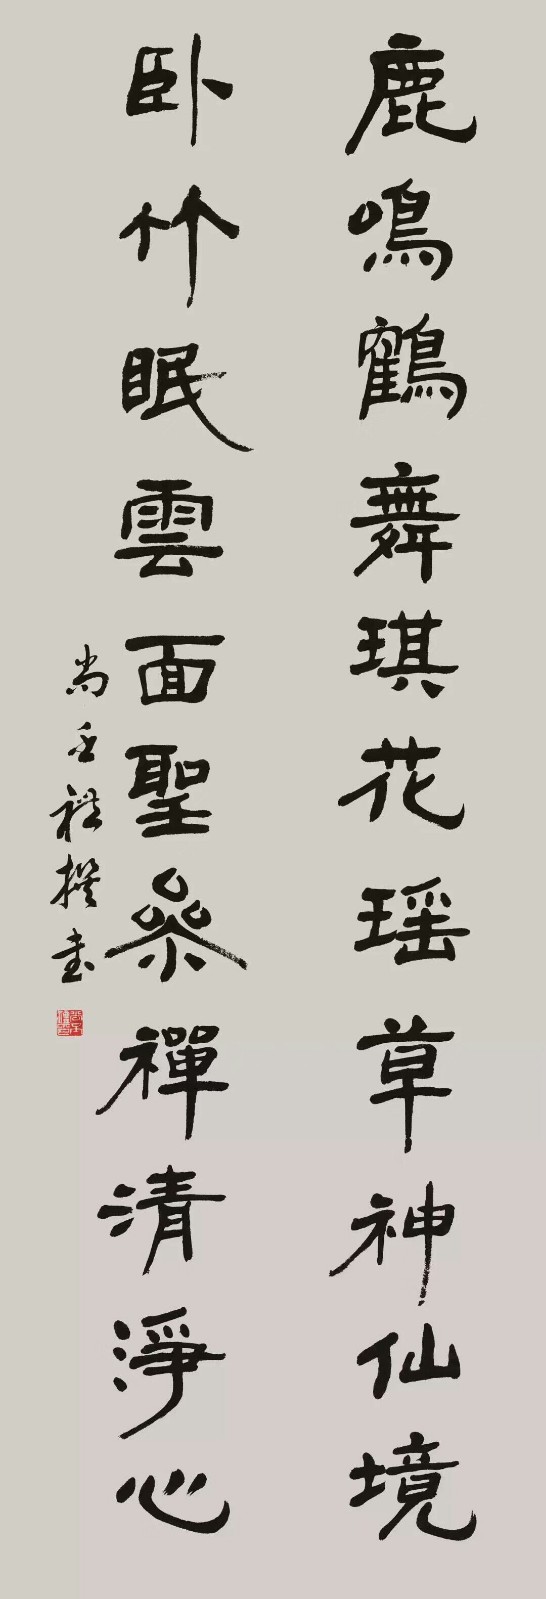 鹿鳴鶴舞琪花瑶草神仙境
卧竹眠雲面聖桑禪清淨心
尚壬禮撰書